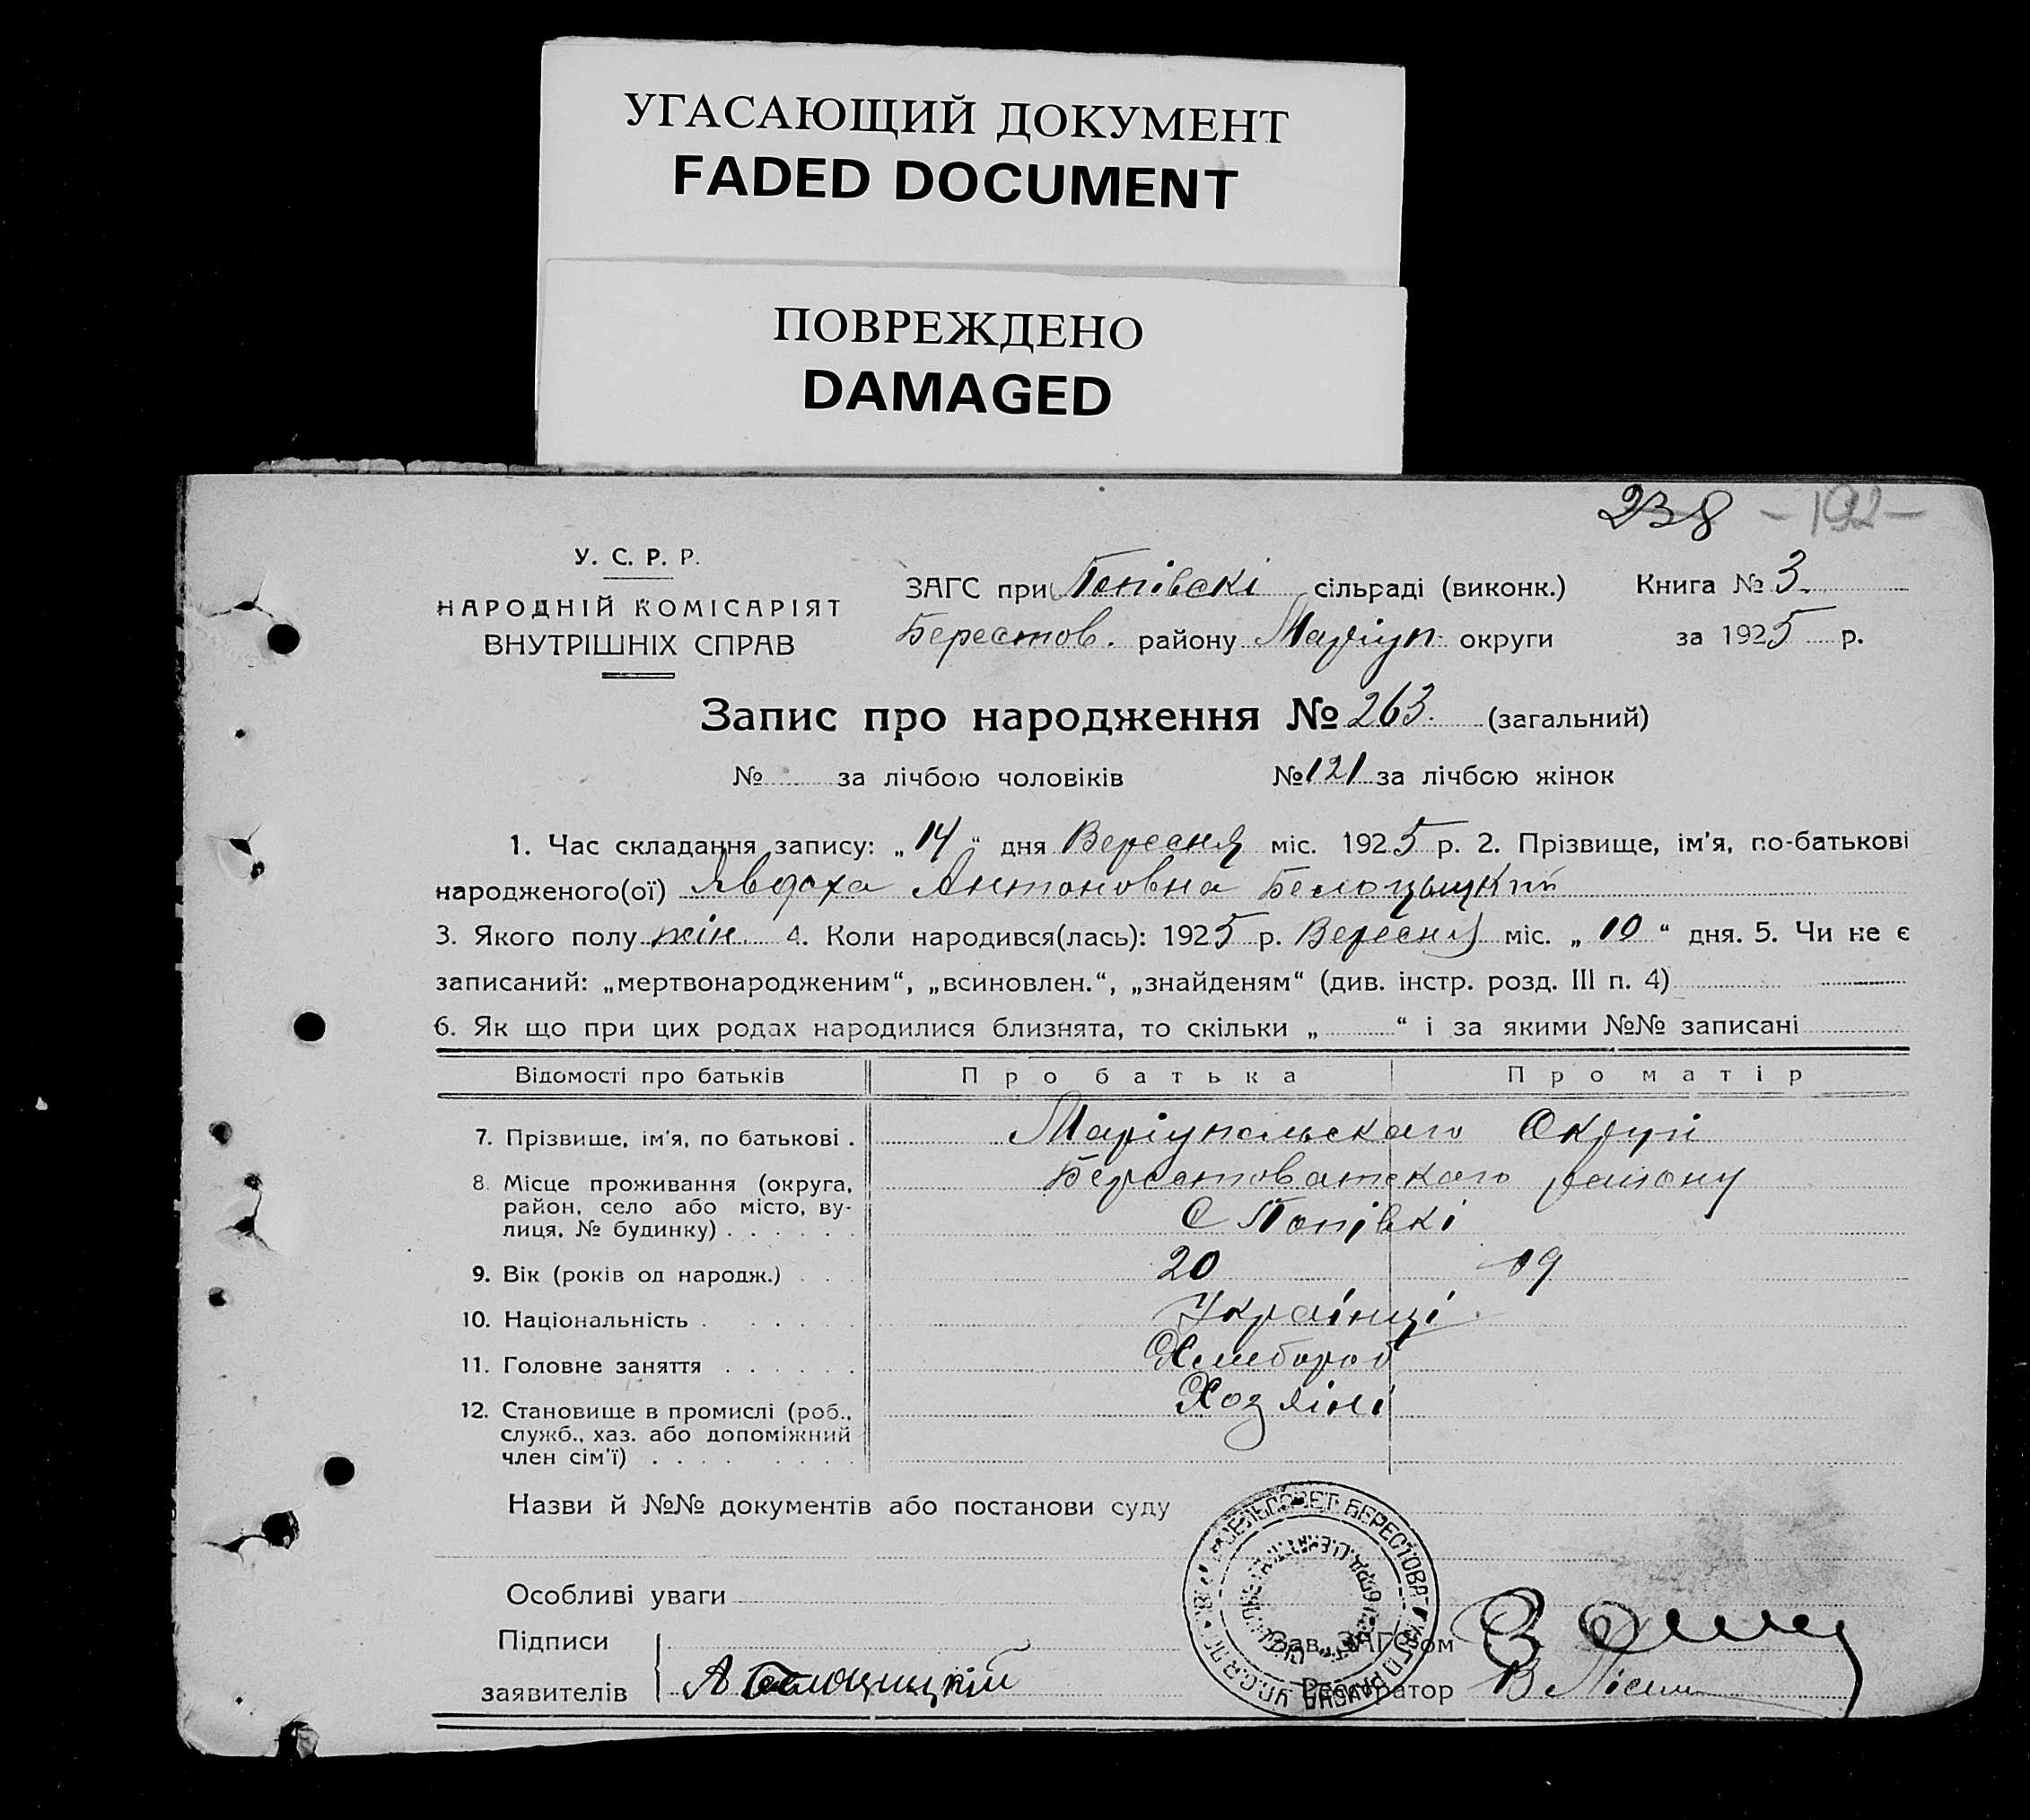 УГАСАЮЩИЙ ДОКУМЕНТ
FADED DOCUMENT
ПОВРЕЖДЕНО
DAMAGED
238 -192-
У. С. Р. Р.
НАРОДНІЙ КОМІСАРІЯТ
ВНУТРІШНІХ СПРАВ
ЗАГС при Попівскі сільраді (виконк.) Книга № 3.
Берестов. району Маріуп. округи за 1925 р.
Запис про народження № 263. (загальний)
№ за лічбою чоловіків № 121 за лічбою жінок
1. Час складання запису: „14“ дня Вересня міс. 1925 р. 2. Прізвище, ім'я, по-батькові
народженого(ої) Явдоха Антоновна Белоцыцкий
3. Якого полу жін. 4. Коли народився(лась): 1925 р. Вересня міс. „10“ дня. 5. Чи не є
записаний: „мертвонародженим“, „всиновлен.“, „знайденям“ (див. інстр. розд. III п. 4)
6. Як що при цих родах народилися близнята, то скільки „ “ і за якими №№ записані
Відомості про батьків Про батька Про матір
7. Прізвище, ім'я, по батькові . Маріупольскаго Округи
8. Місце проживання (округа, Берестоватскаго району
район, село або місто, ву-
лиця, № будинку) . . . . . . С Попівкі
9. Вік (років од народж.) . . . 20 19
10. Національність . . . . . . Українці.
11. Головне заняття . . . . . . Хлібороб
12. Становище в промислі (роб., Хозяіні
служб., хаз. або допоміжний
член сім'ї) . . . . . . . .
Назви й №№ документів або постанови суду
Особливі уваги
Підписи
заявителів А Белоцицкий
Зав. ЗАГС'ом
Реєстратор В
СЕЛЬСОВЕТ БЕРЕСТОВАТСКАГО РАЙОНА